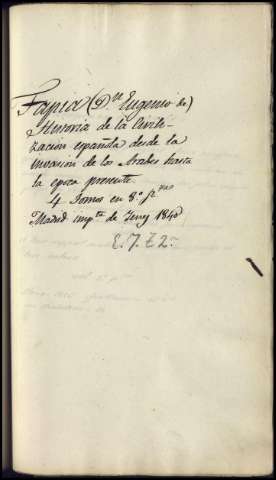 Tapia (Dn Eugenio de)
Historia de la Civili-
zación española desde la
invasion de los Arabes hasta
la epoca presente.
4 Tomos en 8º
Madrid impta de Yenes 1840
E. 7. t 2º